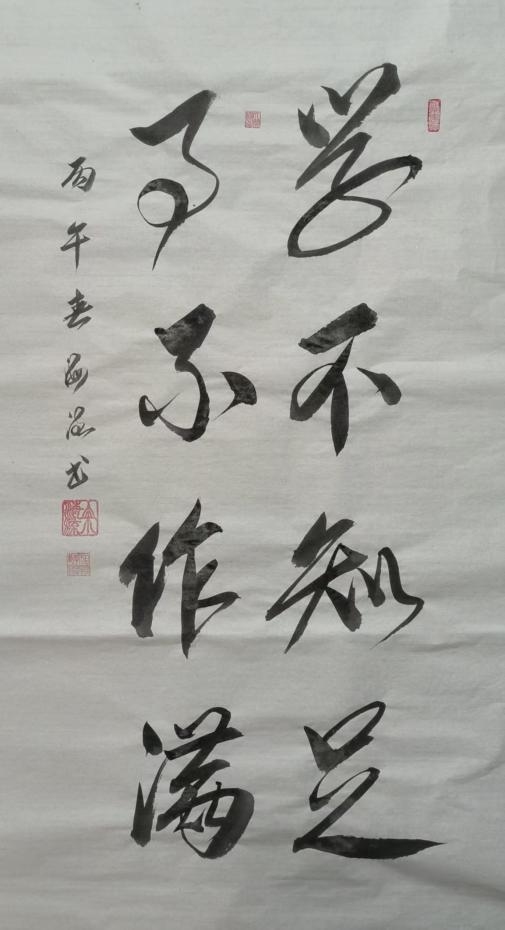 学不知足
事不作满
丙午春
书